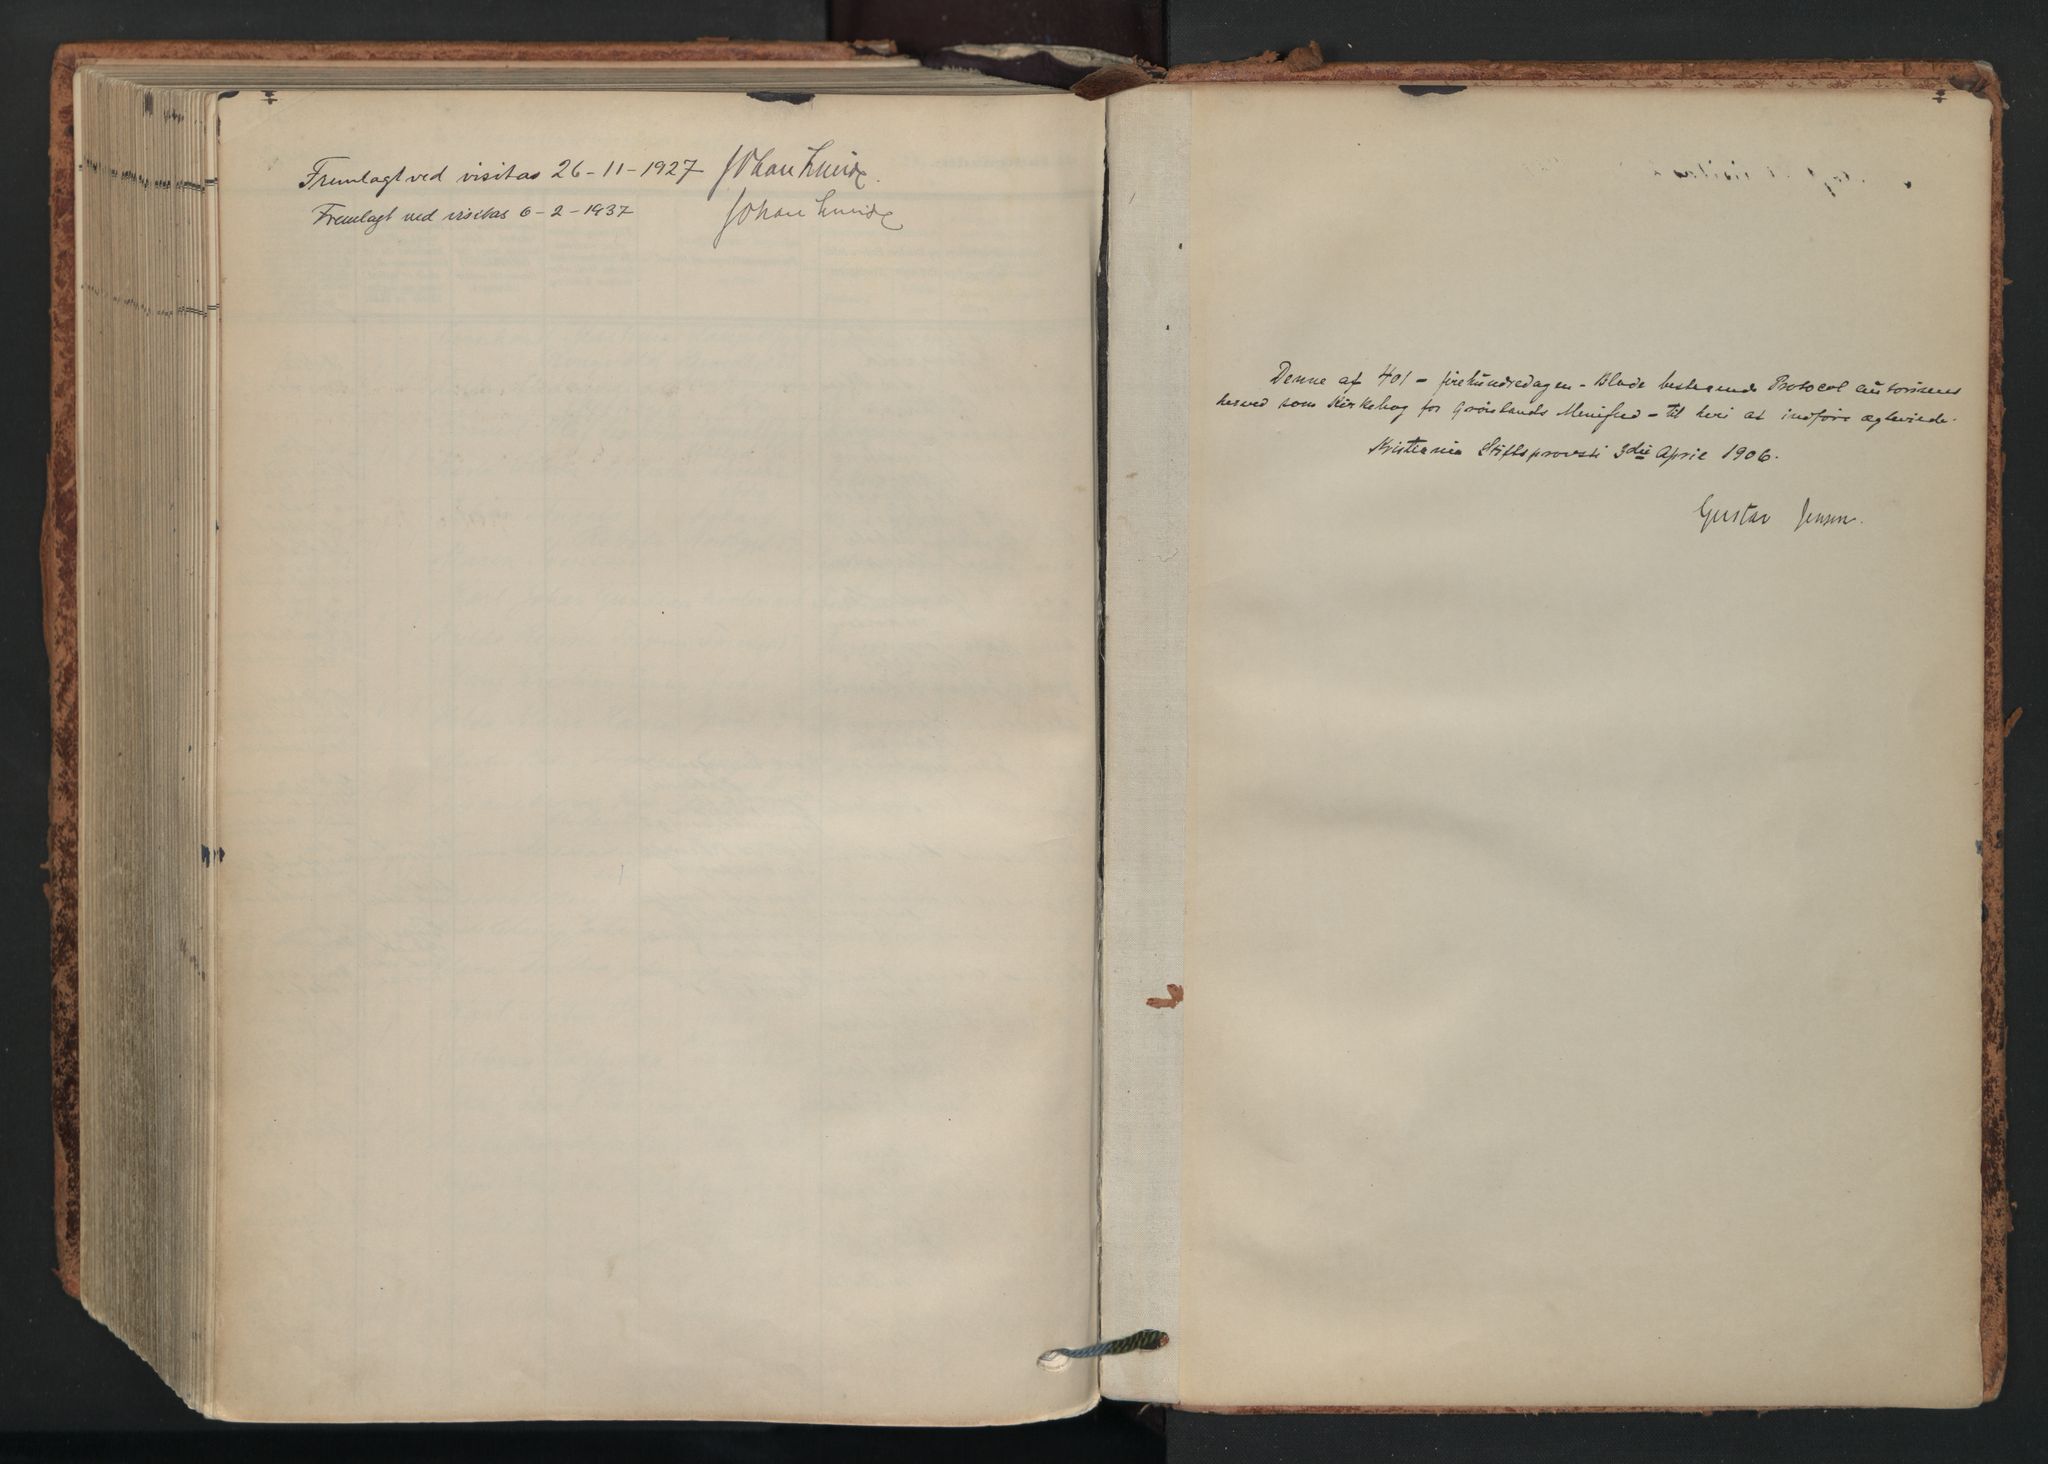 Fremlagt ved visitas 26-11-1927 Johan Lunde.
Fremlagt ved visitas 6-2-1937 Johan Lunde
Denne af 401 - firehundredogen - Blade bestaaende Protocol autoriseres
herved som Kirkebog for Grønlands Menighed - til heri at indføre ægteviede.
Kristiania Stiftsprovsti 3die April 1906.
Gustav Jensen.